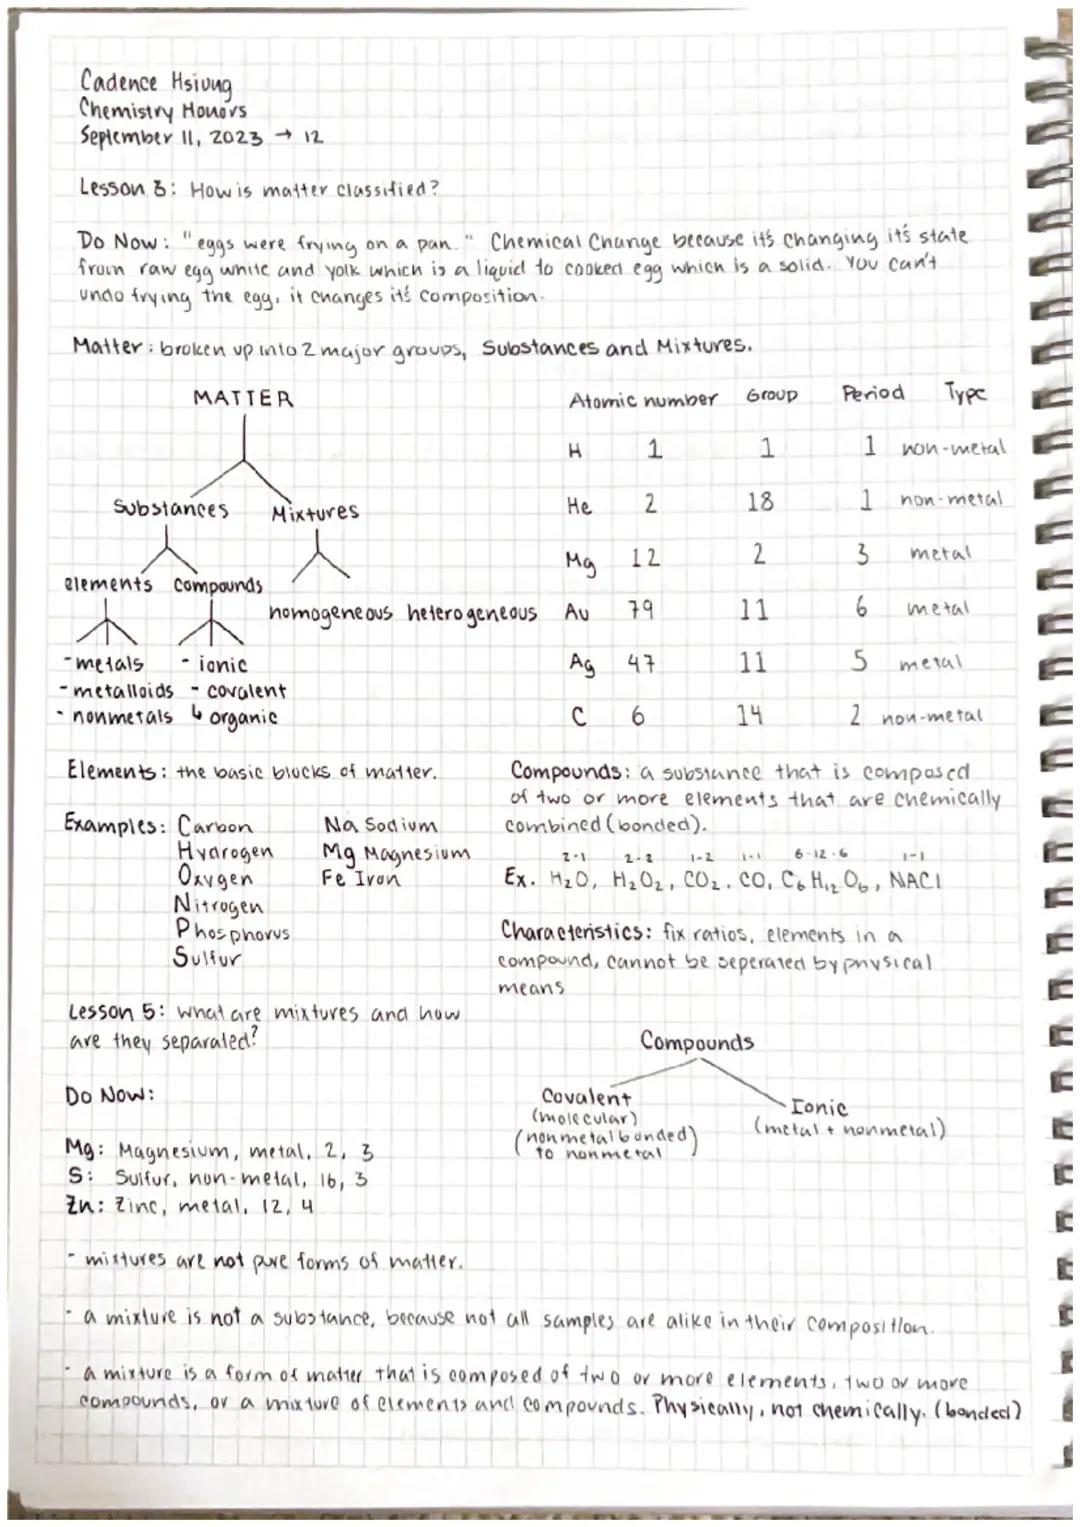 Cadence Hsiung
Chemistry Honors
September 11, 2023 → 12
Lesson 3: How is matter classified?
Do Now: "eggs were frying on a pan." Chemical Change because it's changing it's state
from raw egg white and yolk which is a liquid to cooked egg which is a solid. You can't
undo frying the egg, it changes it's composition.
Matter: broken up into 2 major groups, Substances and Mixtures.
MATTER
Substances Mixtures
elements compounds
homogeneous heterogeneous
- metals - ionic
- metalloids - covalent
- nonmetals ↳ organic
Atomic number Group Period Type
H 1 1 1 non-metal
He 2 18 1 non-metal
Mg 12 2 3 metal
Au 79 11 6 metal
Ag 47 11 5 metal
C 6 14 2 non-metal
Elements: the basic blocks of matter.
Examples: Carbon Na Sodium
Hydrogen Mg Magnesium
Oxygen Fe Iron
Nitrogen
Phosphorus
Sulfur
Compounds: a substance that is composed
of two or more elements that are chemically
combined (bonded).
2-1 2-2 1-2 1-1 6-12-6 1-1
Ex. H₂O, H₂O₂, CO₂, CO, C₆H₁₂O₆, NACl
Characteristics: fix ratios, elements in a
compound, cannot be seperated by physical
means
Lesson 5: what are mixtures and how
are they separated?
Do Now:
Mg: Magnesium, metal, 2, 3
S: Sulfur, non-metal, 16, 3
Zn: Zinc, metal, 12, 4
Compounds
Covalent
(molecular)
(nonmetal bonded)
to nonmetal
Ionic
(metal + nonmetal)
- mixtures are not pure forms of matter.
- a mixture is not a substance, because not all samples are alike in their composition.
- a mixture is a form of matter that is composed of two or more elements, two or more
compounds, or a mixture of elements and compounds. Physically, not chemically. (bonded)